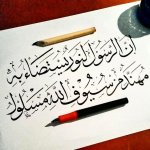 إن الرسول لنور يستضاء به
مهند من سيوف الله مسلول